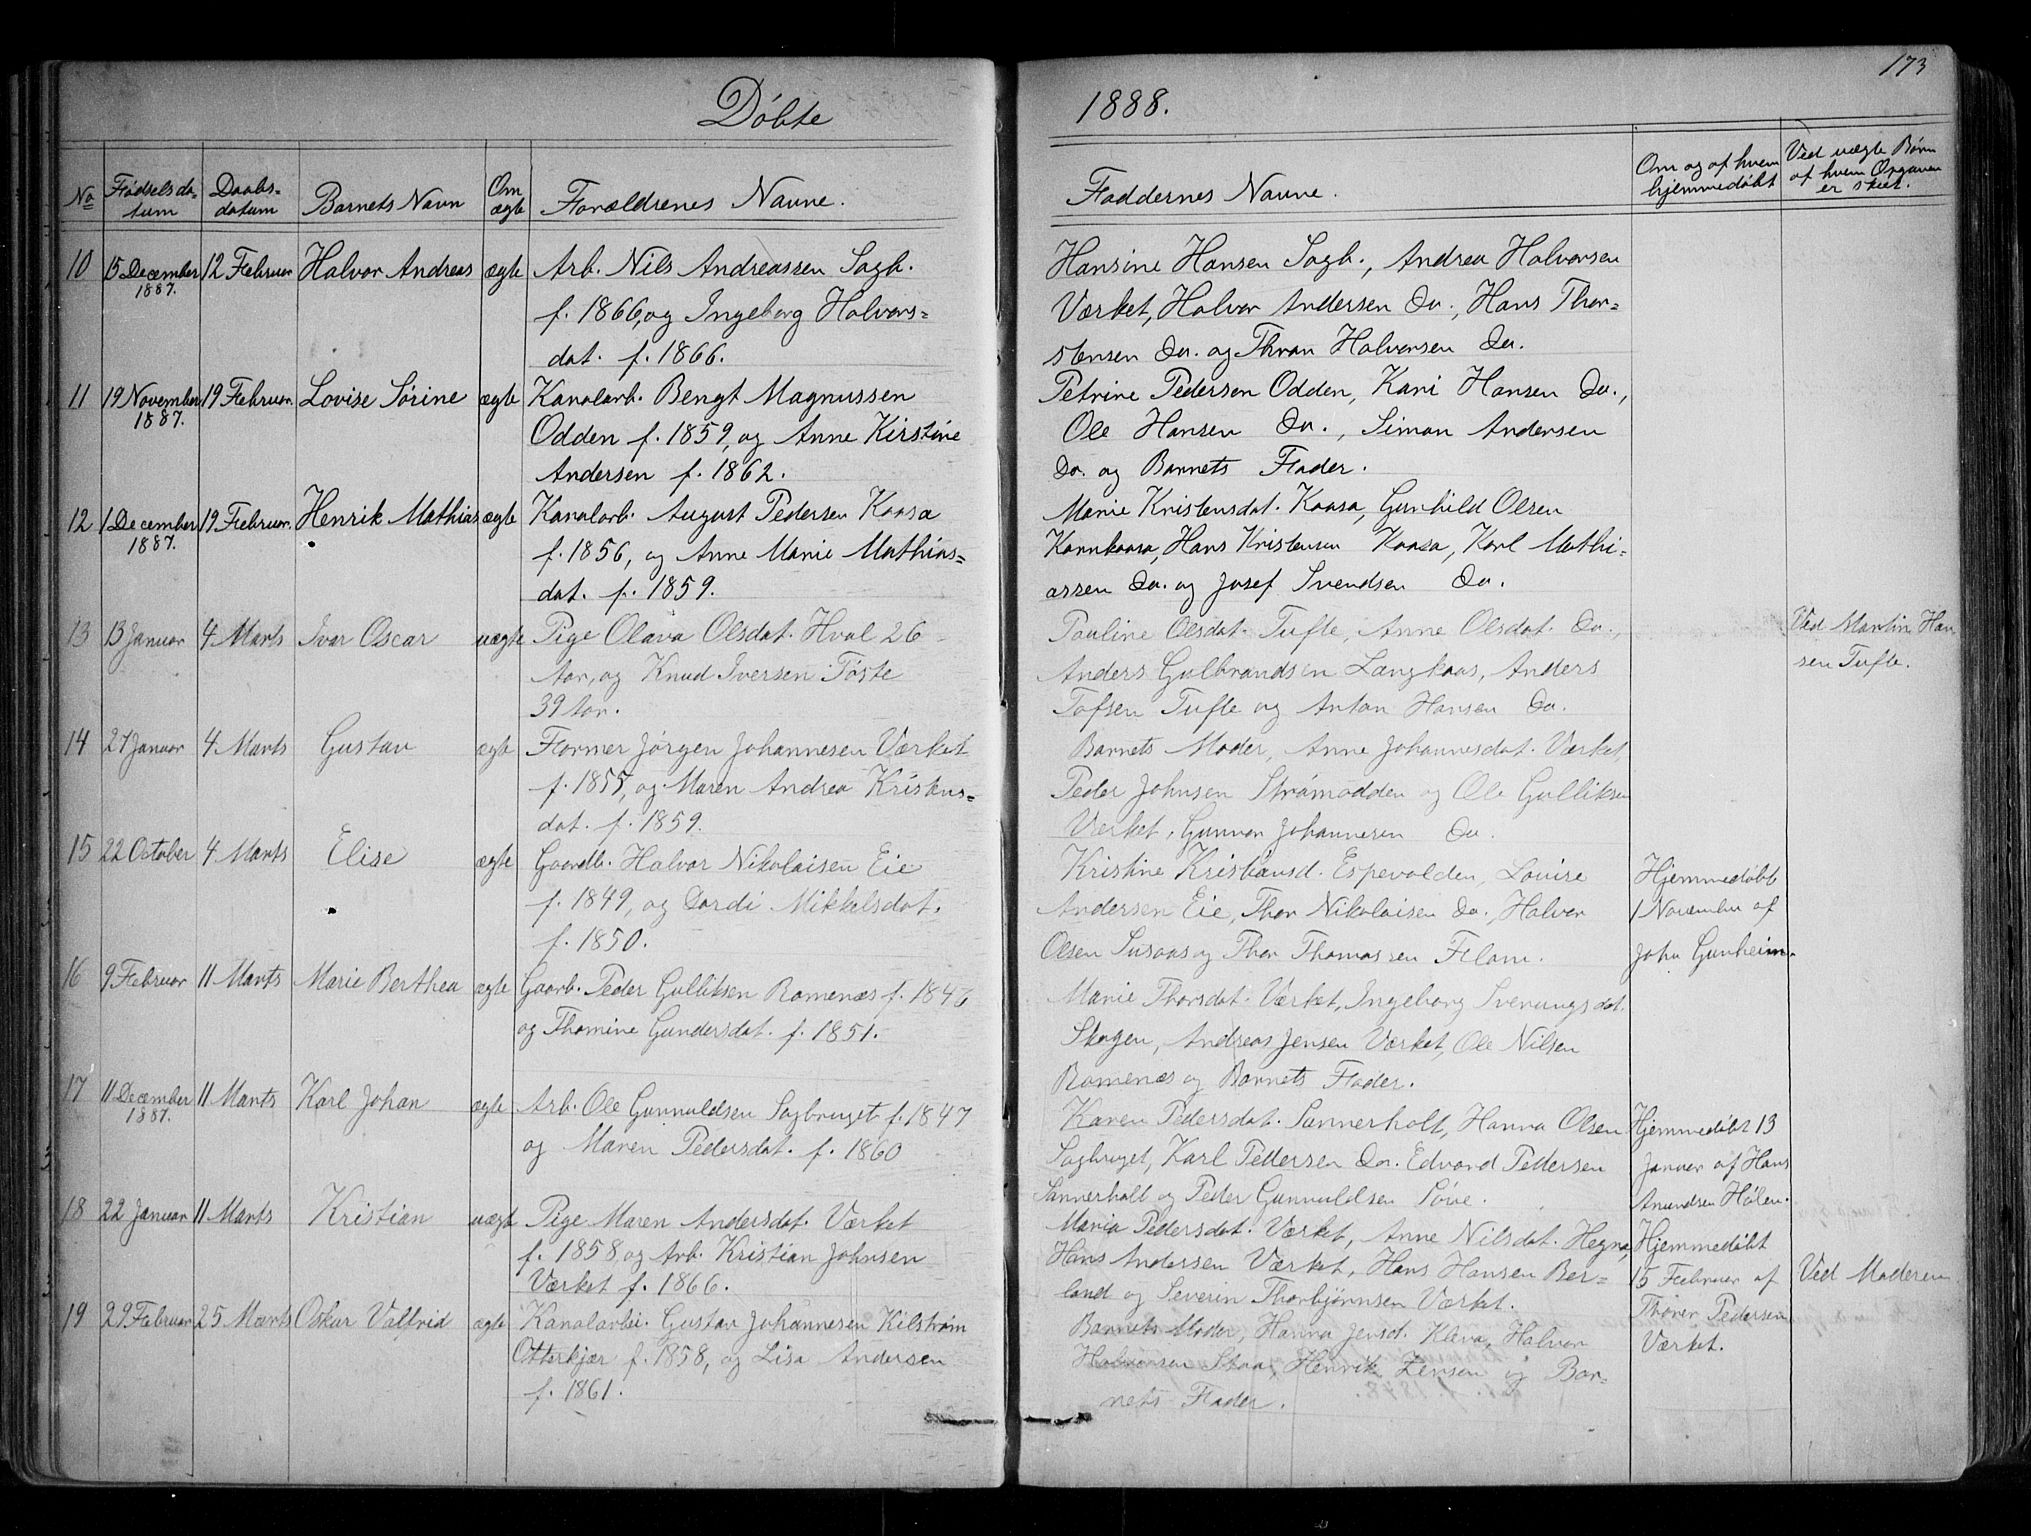 173
Döbte 1888.
No
Födselsda-
tum
Daabs-
datum
Barnets Navn
Om
ægte
Forældrenes Navne.
Faddernes Navne.
Om og af hvem
hjemmedöbt
Ved uægte Börn
af hvem Opgaven
er skeet.
10 15 December 12 Februar Halvor Andreas ægte Arb. Nils Andreassen Sagb.
1887.
f. 1866, og Ingeborg Halvors=
dat. f. 1866.
Hansine Hansen Sagb., Andrea Halvorsen
Værket, Halvor Andersen Do., Hans Thor=
stensen Do. og Thron Halvorsen Do.
11 19 November 19 Februar. Lovise Sörine ægte Kanalarb. Bengt Magnussen
1887.
Odden f. 1859, og Anne Kirstine
Andersen f. 1862.
Petrine Pedersen Odden, Kari Hansen Do.,
Ole Hansen Do., Simon Andersen
Do. og Barnets Fader.
12 1 December 19 Februar. Henrik Mathias ægte Kanalarb. August Pedersen Kaasa
1887.
f. 1856, og Anne Marie Mathias=
dat. f. 1859.
Marie Kristensdat. Kaasa, Gunhild Olsen
Kornkaasa, Hans Kristensen Kaasa, Karl Mathi=
assen Do. og Josef Svendsen Do.
13 13 Januar 4 Marts Ivar Oscar uægte Pige Olava Olsdat. Hval 26
Aar, og Knud Iversen Töste
39 Aar.
Pauline Olsdat. Tufte, Anne Olsdat. Do.,
Anders Gulbrandsen Langkaas, Anders
Tofsen Tufte og Anton Hansen Do.
Ved Martin Han
sen Tufte.
14 21 Januar 4 Marts Gustav ægte Former Jörgen Johannesen Værket
f. 1855, og Maren Andrea Kristens=
dat. f. 1859.
Barnets Moder, Anne Johannesdat. Værket,
Peder Johnsen Strömodden og Ole Gulliksen
Værket, Gunnar Johannesen Do.
15 22 October 4 Marts Elise ægte Gaardb. Halvor Nikolaisen Eie
f. 1849, og Dordi Mikkelsdat.
f. 1850.
Kristine Kristiansd. Espevolden, Lovise
Andersen Eie, Thor Nikolaisen Do., Halvor
Olsen Susaas og Thor Thomassen Flom.
Hjemmedöbt
1 November af
John Gunheim.
16 9 Februar 11 Marts Marie Berthea ægte Gaarb. Peder Gulliksen Romenæs f. 1846
og Thomine Gundersdat. f. 1851.
Marie Thorsdat. Værket, Ingeborg Sverungsdat.
Skogen, Andreas Jensen Værket, Ole Nilsen
Romenæs og Barnets Fader.
17 11 December 11 Marts Karl Johan ægte Arb. Ole Gunnuldsen Sagbruget f. 1847
1887.
og Maren Pedersdat. f. 1860
Karen Pedersdat. Sannerholt, Hanna Olsen
Sagbruget, Karl Pettersen Do. Edvard Pettersen
Sannerholt og Peder Gunnuldsen Söve.
Hjemmedöbt 13
Januar af Hans
Amundsen Holen.
18 22 Januar 11 Marts Kristian uægte Pige Maren Andersdat. Værket
f. 1858 og Arb. Kristian Johnsen
Værket f. 1866.
Maria Pedersdat. Værket, Anne Nilsdat. Hegna,
Hans Andersen Værket, Hans Hansen Ber=
land og Severin Thorbjörnsen Værket.
Hjemmedöbt
15 Februar af
Thorer Pedersen
Værket.
Ved Moderen
19 29 Februar 25 Marts Oskar Valfrid ægte Kanalarbei. Gustav Johannesen Kilström
Otterkjær f. 1858, og Lisa Andersen
f. 1861.
Barnets Moder, Hanna Jensd. Kleva, Halvor
Halvorsen Staa, Henrik Jensen og Bar=
nets Fader.